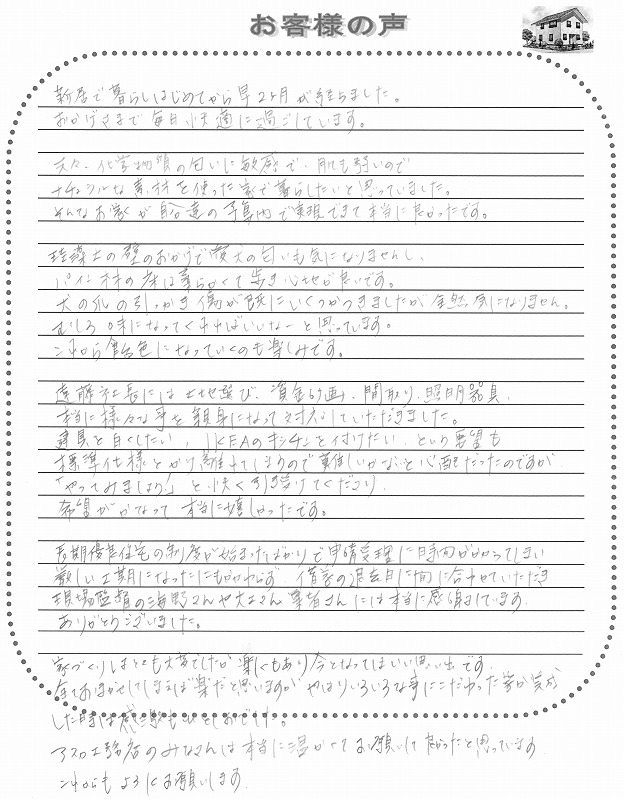 お客様の声
新居で暮らしはじめてから早2ヶ月が経ちました。
おかげさまで毎日快適に過ごしています。
元々、化学物質の匂いに敏感で、肌も弱いので
ナチュラルな素材を使った家で暮らしたいと思っていました。
そんなお家が自分達の予算内で実現できて本当に良かったです。
珪藻土の壁のおかげで愛犬の匂いも気になりませんし、
パイン材の床は柔らかくて歩き心地が良いです。
犬の爪の引っかき傷が既にいくつかつきましたが全然気になりません。
むしろ味になってくれればいいなーと思っています。
これから飴色になっていくのも楽しみです。
遠藤社長には土地選び、資金計画、間取り、照明器具、
本当に様々な事を親身になって対応していただきました。
建具を白くしたい、IKEAのキッチンを付けたい、という要望も
標準仕様とかけ離れてしまうので難しいかな…と心配だったのですが
「やってみましょう!」と快く引き受けてくださり、
希望がかなって本当に嬉しかったです。
長期優良住宅の制度が始まったばかりで申請受理に時間がかかってしまい
厳しい工期になったにもかかわらず、借家の退去日に間に合わせていただき
現場監督の海野さんや大工さん、業者さんには本当に感謝しています。
ありがとうございました。
家づくりはとても大変でしたが楽しくもあり今となってはいい思い出です。
全ておまかせしてしまえば楽だと思いますが、やはりいろいろな事にこだわった家が完成
した時は感激もひとしおでした。
アスカ工務店のみなさんは本当に温かくてお願いして良かったと思っています。
これからもよろしくお願いします。